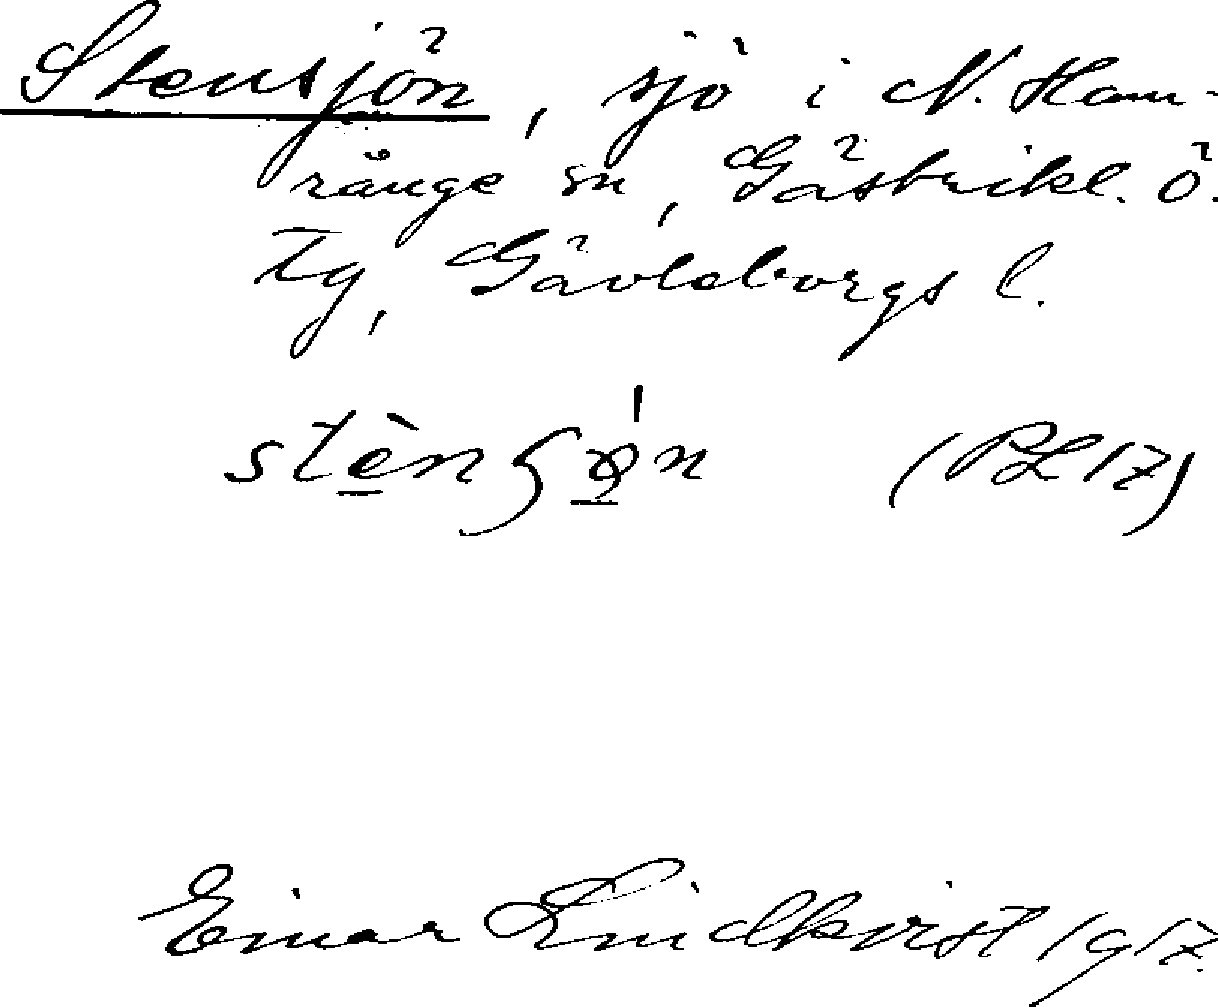 Stensjön, sjö i N. Ham-
rånge sn, Gästrikl. ö.
tg, Gävleborgs l.
stènʃø̀n (PL17)
Einar Lindkvist 1917.